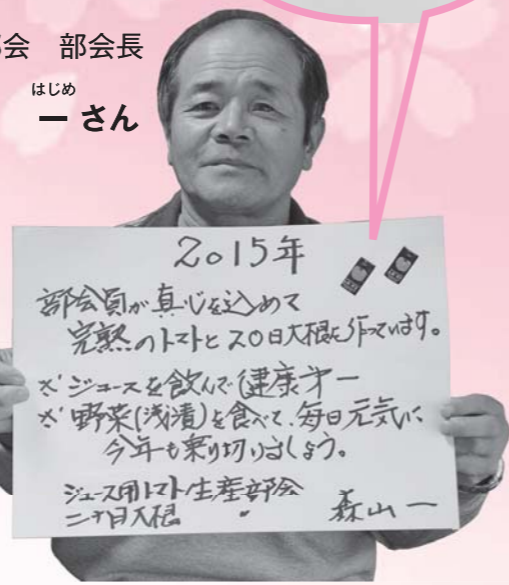 部会　部会長
はじめ
一さん
2015年
部会員が真心を込めて
完熟のトマトと20日大根を作っています。
ジュースを飲んで健康第一
野菜(浅漬)を食べて、毎日元気に
今年も乗り切りましょう。
ジュース用トマト生産部会
二十日大根 〃
森山一